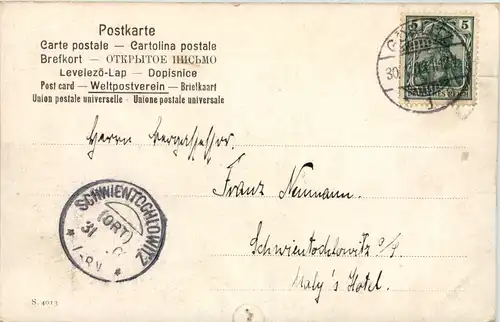 Postkarte
Carte postale — Cartolina postale
Brefkort — ОТКРЫТОЕ ПИСЬМО
Levelező-Lap — Dopisnice
Post card — Weltpostverein — Briefkaart
Union postale universelle - Unione postale universale
5 5
30
Herrn Bergassessor.
Franz Neumann.
SCHWIENTOCHLOWITZ
(ORT)
31
Schwientochlowitz o/S.
Maly's Hotel.
S. 4013